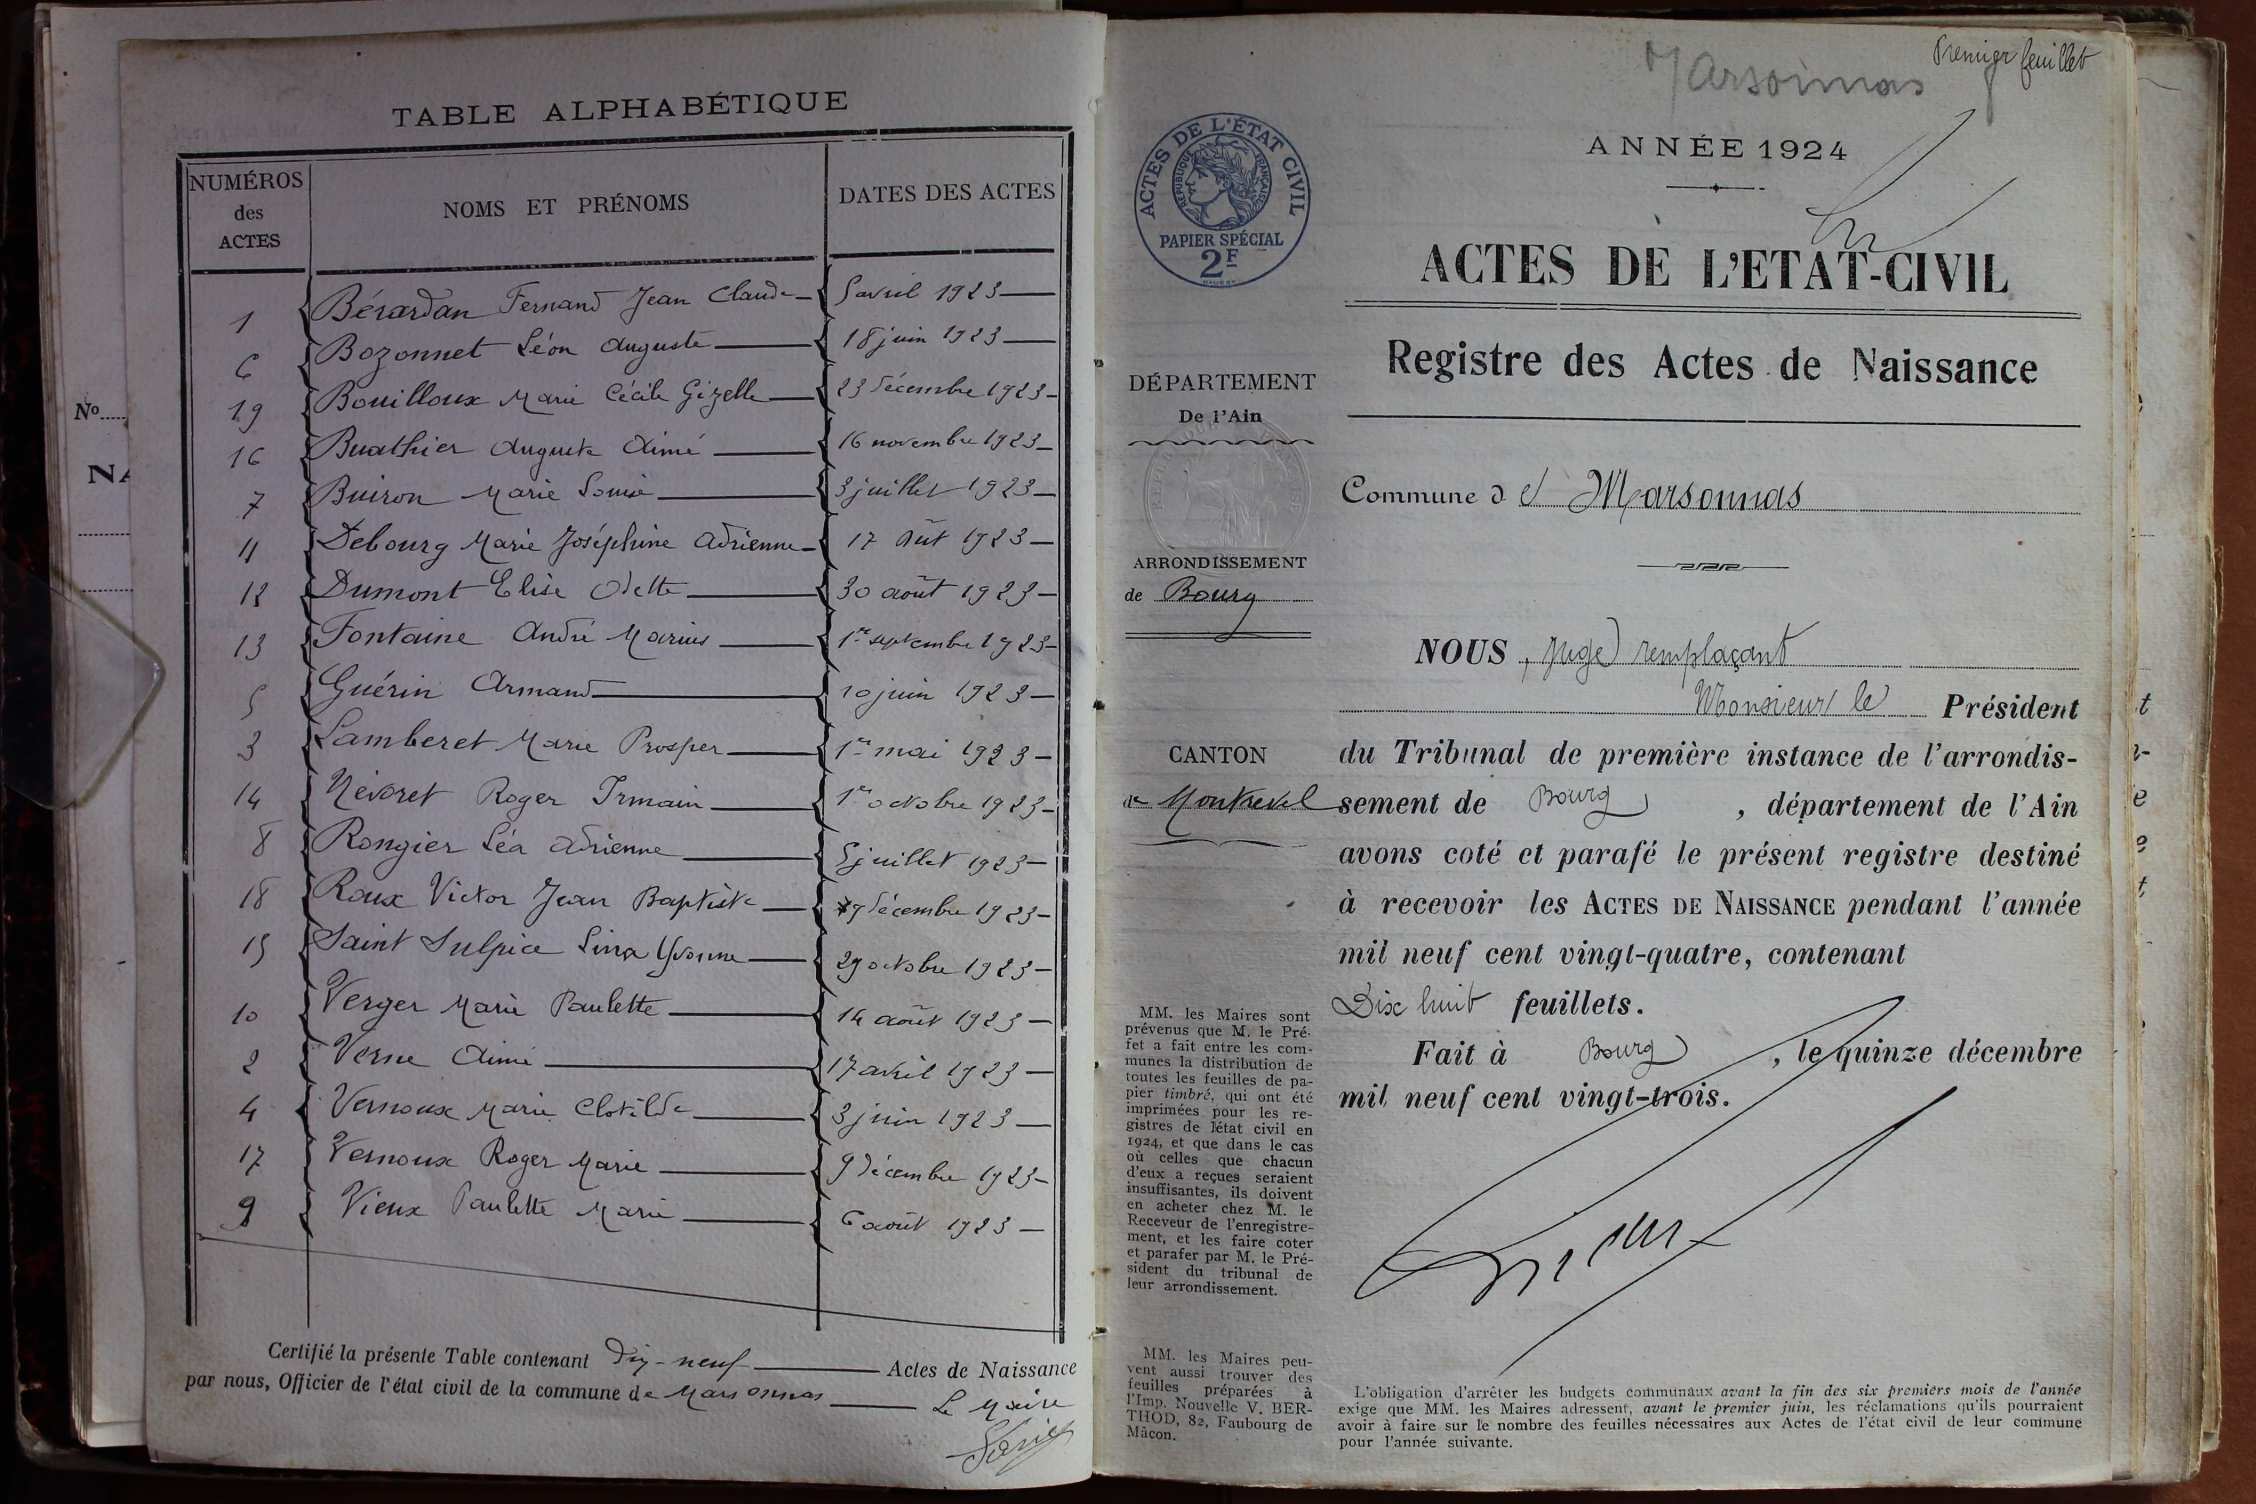 TABLE ALPHABÉTIQUE
NUMÉROS des ACTES NOMS ET PRÉNOMS DATES DES ACTES
1 Bérardan Fernand Jean Claude 5 avril 1923
6 Bozonnet Léon Auguste 18 juin 1923
19 Bouilloux Marie Cécile Gizelle 23 décembre 1923
16 Buathier Auguste Aimé 16 novembre 1923
7 Buiron Marie Louise 3 juillet 1923
11 Debourg Marie Joséphine Adrienne 17 Août 1923
12 Dumont Elise Odette 30 août 1923
13 Fontaine André Marius 1er septembre 1923
5 Guérin Armand 10 juin 1923
3 Lamberet Marie Prosper 1er mai 1923
14 Névoret Roger Irmain 1er octobre 1923
8 Rongier Léa Adrienne 5 juillet 1923
18 Roux Victor Jean Baptiste 19 décembre 1923
15 Saint Sulpice Lina Yvonne 29 octobre 1923
10 Verger Marie Paulette 14 août 1923
2 Verne Aimé 17 avril 1923
4 Vernoux Marie Clotilde 3 juin 1923
17 Vernoux Roger Marie 9 décembre 1923
9 Vieux Paulette Marie 6 août 1923
Certifié la présente Table contenant Dix-neuf Actes de Naissance
par nous, Officier de l'état civil de la commune de Marsonnas
Le Maire
No
NA
Premier feuillet
Marsonnas
ACTES DE L'ÉTAT CIVIL
RÉPUBLIQUE FRANÇAISE
PAPIER SPÉCIAL
2F
DÉPARTEMENT
De l'Ain
ARRONDISSEMENT
de Bourg
CANTON
de Montrevel
MM. les Maires sont
prévenus que M. le Pré-
fet a fait entre les com-
munes la distribution de
toutes les feuilles de pa-
pier timbré, qui ont été
imprimées pour les re-
gistres de l'état civil en
1924, et que dans le cas
où celles que chacun
d'eux a reçues seraient
insuffisantes, ils doivent
en acheter chez M. le
Receveur de l'enregistre-
ment, et les faire coter
et parafer par M. le Pré-
sident du tribunal de
leur arrondissement.
MM. les Maires peu-
vent aussi trouver des
feuilles préparées à
l'Imp. Nouvelle V. BER-
THOD, 82, Faubourg de
Mâcon.
ANNÉE 1924
ACTES DE L'ETAT-CIVIL
Registre des Actes de Naissance
Commune de Marsonnas
NOUS, Juge remplaçant
Monsieur le Président
du Tribunal de première instance de l'arrondis-
sement de Bourg, département de l'Ain
avons coté et parafé le présent registre destiné
à recevoir les ACTES DE NAISSANCE pendant l'année
mil neuf cent vingt-quatre, contenant
Dix huit feuillets.
Fait à Bourg, le quinze décembre
mil neuf cent vingt-trois.
L'obligation d'arrêter les budgets communaux avant la fin des six premiers mois de l'année
exige que MM. les Maires adressent, avant le premier juin, les réclamations qu'ils pourraient
avoir à faire sur le nombre des feuilles nécessaires aux Actes de l'état civil de leur commune
pour l'année suivante.